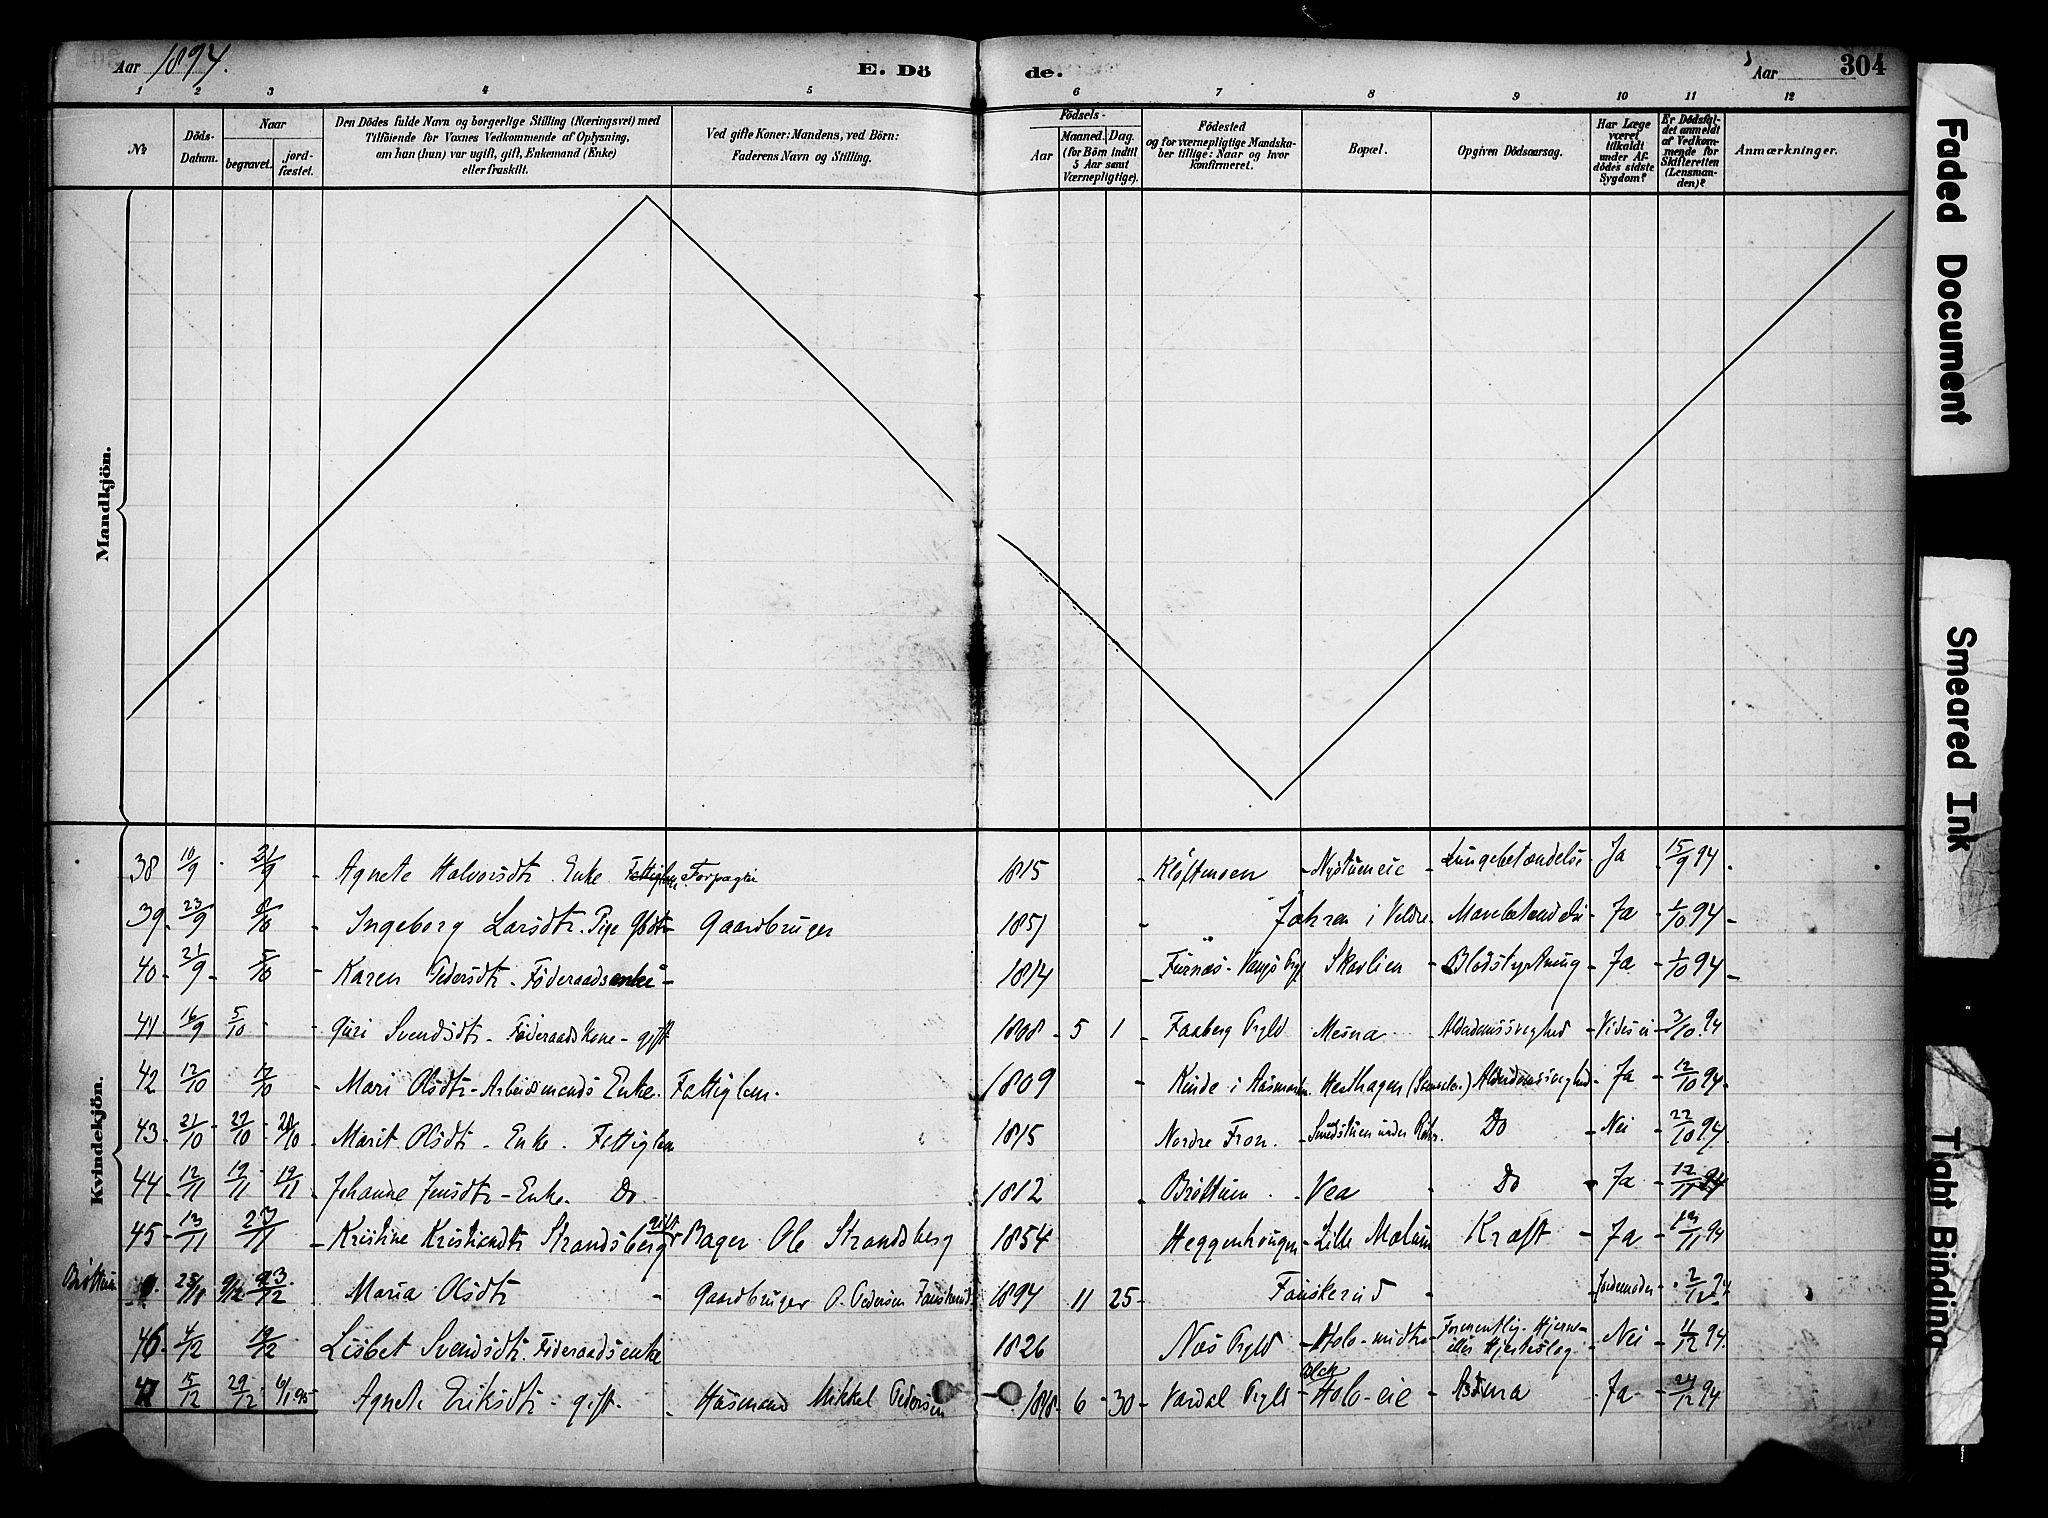 Aar 1894.
E. Döde.
Aar
304
1 2 3 4 5 6 7 8 9 10 11 12
№
Döds-Datum.
Naar
begravet.
jordfæstet.
Den Dödes fulde Navn og borgerlige Stilling (Næringsvei) med
Tilföiende for Voxnes Vedkommende af Oplysning,
om han (hun) var ugift, gift, Enkemand (Enke)
eller fraskilt.
Ved gifte Koner: Mandens, ved Börn:
Faderens Navn og Stilling.
Födsels-
Aar
Maaned. Dag.
(for Börn indtil
5 Aar samt
Værnepligtige).
Födested
og for værnepligtige Mandska-
ber tillige: Naar og hvor
konfirmeret.
Bopæl.
Opgiven Dödsaarsag.
Har Læge
været
tilkaldt
under Af-
dödes sidste
Sygdom?
Er Dödsfal-
det anmeldt
af Vedkom-
mende for
Skifteretten
(Lensman-
den)?
Anmærkninger.
Mandkjön.
Kvindekjön.
38 10/9 21/9 Agnete Halvorsdtr. Enke Forpagter 1815 Nystueneie Lungebetændelse Ja 15/9 94
39 23/9 Ingeborg Larsdtr. Pige Gaardbruger 1851 Jahren i Veldre Mavebetændelse Ja 1/10 94
40 21/9 5/10 Karen Pedersdtr. Föderaadsenke 1814 Furnæs Skavlien Blodstyrtning Ja 1/10 94
41 16/9 5/10 Guri Svendsdtr. Föderaadskone gift 1808 5 1 Faaberg Prgld Mesna Alderdomssvaghed Vides ei 3/10 94
42 12/10 Mari Olsdtr. Arbeidsmands Enke. Fattiglem. 1809 Kinde i Aasmarken Hesthagen Alderdomssvaghed Ja 12/10 94
43 21/10 27/10 28/10 Marit Olsdtr. Enke. Fattiglem 1815 Nordre Fron Smedstuen under Do Nei 22/10 94
44 12/11 19/11 19/11 Johanne Jensdtr. Enke. Do 1812 Bröttum Vea Do Ja 12/11 94
45 13/11 23/11 Kristine Kristiansdtr. Strandsberg gift Bager Ole Strandsberg 1854 Heggenhougen Lille Mælum Kræft Ja 94
Bröttum 9. 23/12 Maria Olsdtr Gaardbruger O. Pedersen Fauskerud 1894 11 25 Fauskerud Jordemoder 2/12 94
46 4/12 Lisbet Svendsdtr. Föderaadsenke 1826 Næs Prgld Holo-midtre Formentlig Hjerne- eller Hjerteslag Nei 11/12 94
47 15/12 29/12 6/1 95 Agnete Eriksdtr. gift. Husmand Mikkel Pedersen 1818 6 30 Vardal Prgld Holo-eie Astma Ja 24/12 94
Faded Document
Smeared Ink
Tight Binding